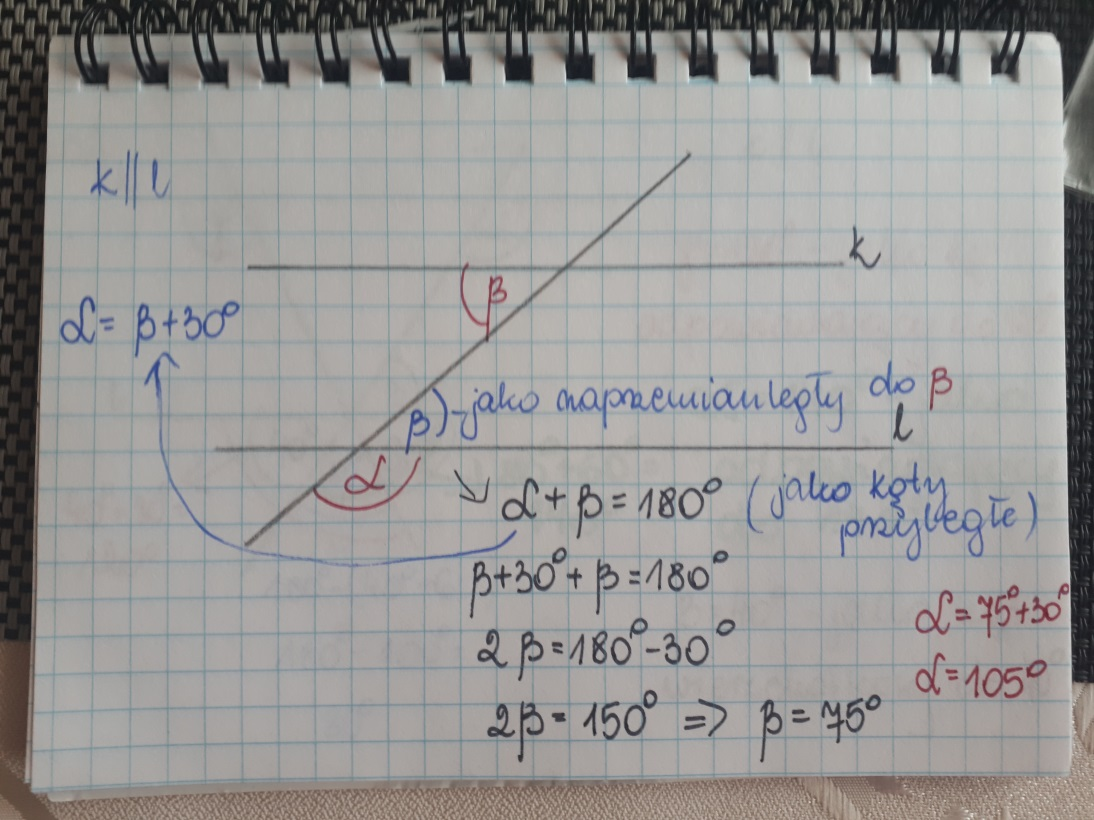 k||l
k
β
α = β+30°
β) - jako naprzemianległy do β
l
α
α + β = 180° (jako kąty przyległe)
β+30°+ β = 180°
2β = 180°-30°
2β = 150° => β = 75°
α = 75°+30°
α = 105°